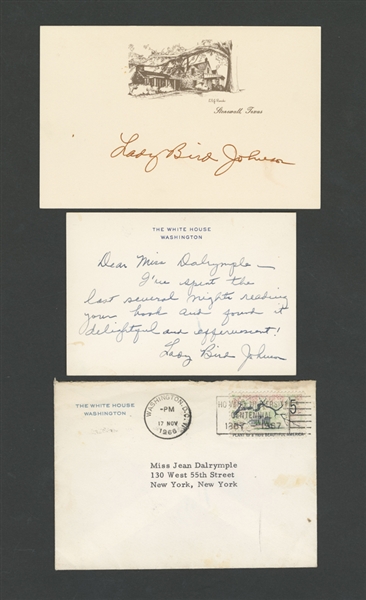 LBJ Ranch
Stonewall, Texas
Lady Bird Johnson
THE WHITE HOUSE
WASHINGTON
Dear Miss Dalrymple—
I've spent the
last several nights reading
your book and found it
delightful and effervescent!
Lady Bird Johnson
THE WHITE HOUSE
WASHINGTON
WASHINGTON, D.C.
-PM
17 NOV
1966
HOWARD UNIVERSITY
CENTENNIAL
1867 1967
5
PLANT for a more BEAUTIFUL AMERICA
Miss Jean Dalrymple
130 West 55th Street
New York, New York